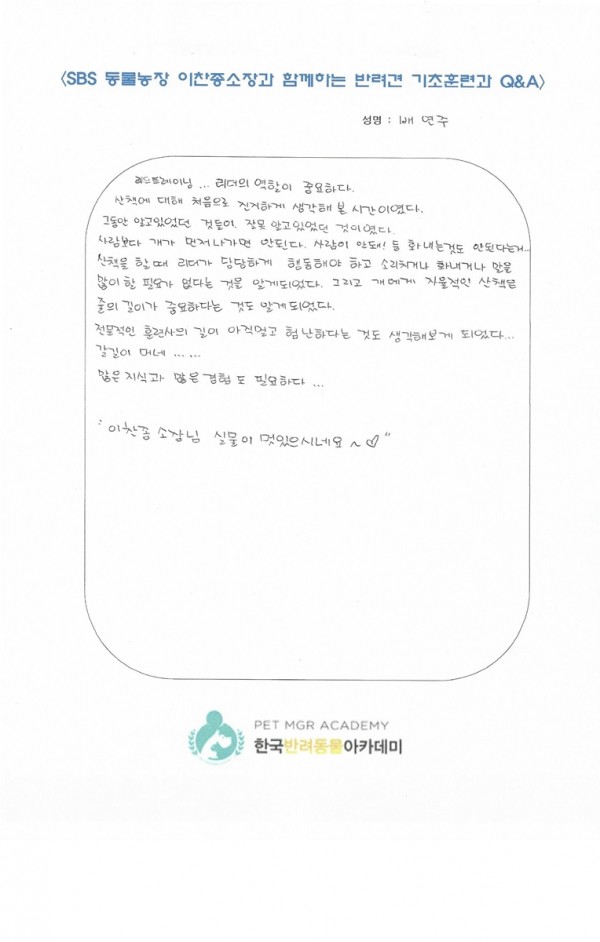 <SBS 동물농장 이찬종소장과 함께하는 반려견 기초훈련과 Q&A>
성명 : 배 연주
리드트레이닝 ... 리더의 역할이 중요하다.
산책에 대해 처음으로 진지하게 생각해 볼 시간이였다.
그동안 알고있었던 것들이. 잘못 알고있었던 것이였다.
사람보다 개가 먼저나가면 안된다. 사람이 안돼! 등 화내는것도 안된다는거...
산책을 할때 리더가 당당하게 행동해야 하고 소리치거나 화내거나 말을
많이 할 필요가 없다는 것을 알게되었다. 그리고 개에게 자율적인 산책은
줄의 길이가 중요하다는 것도 알게되었다.
전문적인 훈련사의 길이 아직멀고 험난하다는 것도 생각해보게 되었다...
갈길이 머네 ... ...
많은 지식과 많은 경험도 필요하다 ...
"이찬종 소장님 실물이 멋있으시네요 ~ ♡"
PET MGR ACADEMY
한국반려동물아카데미